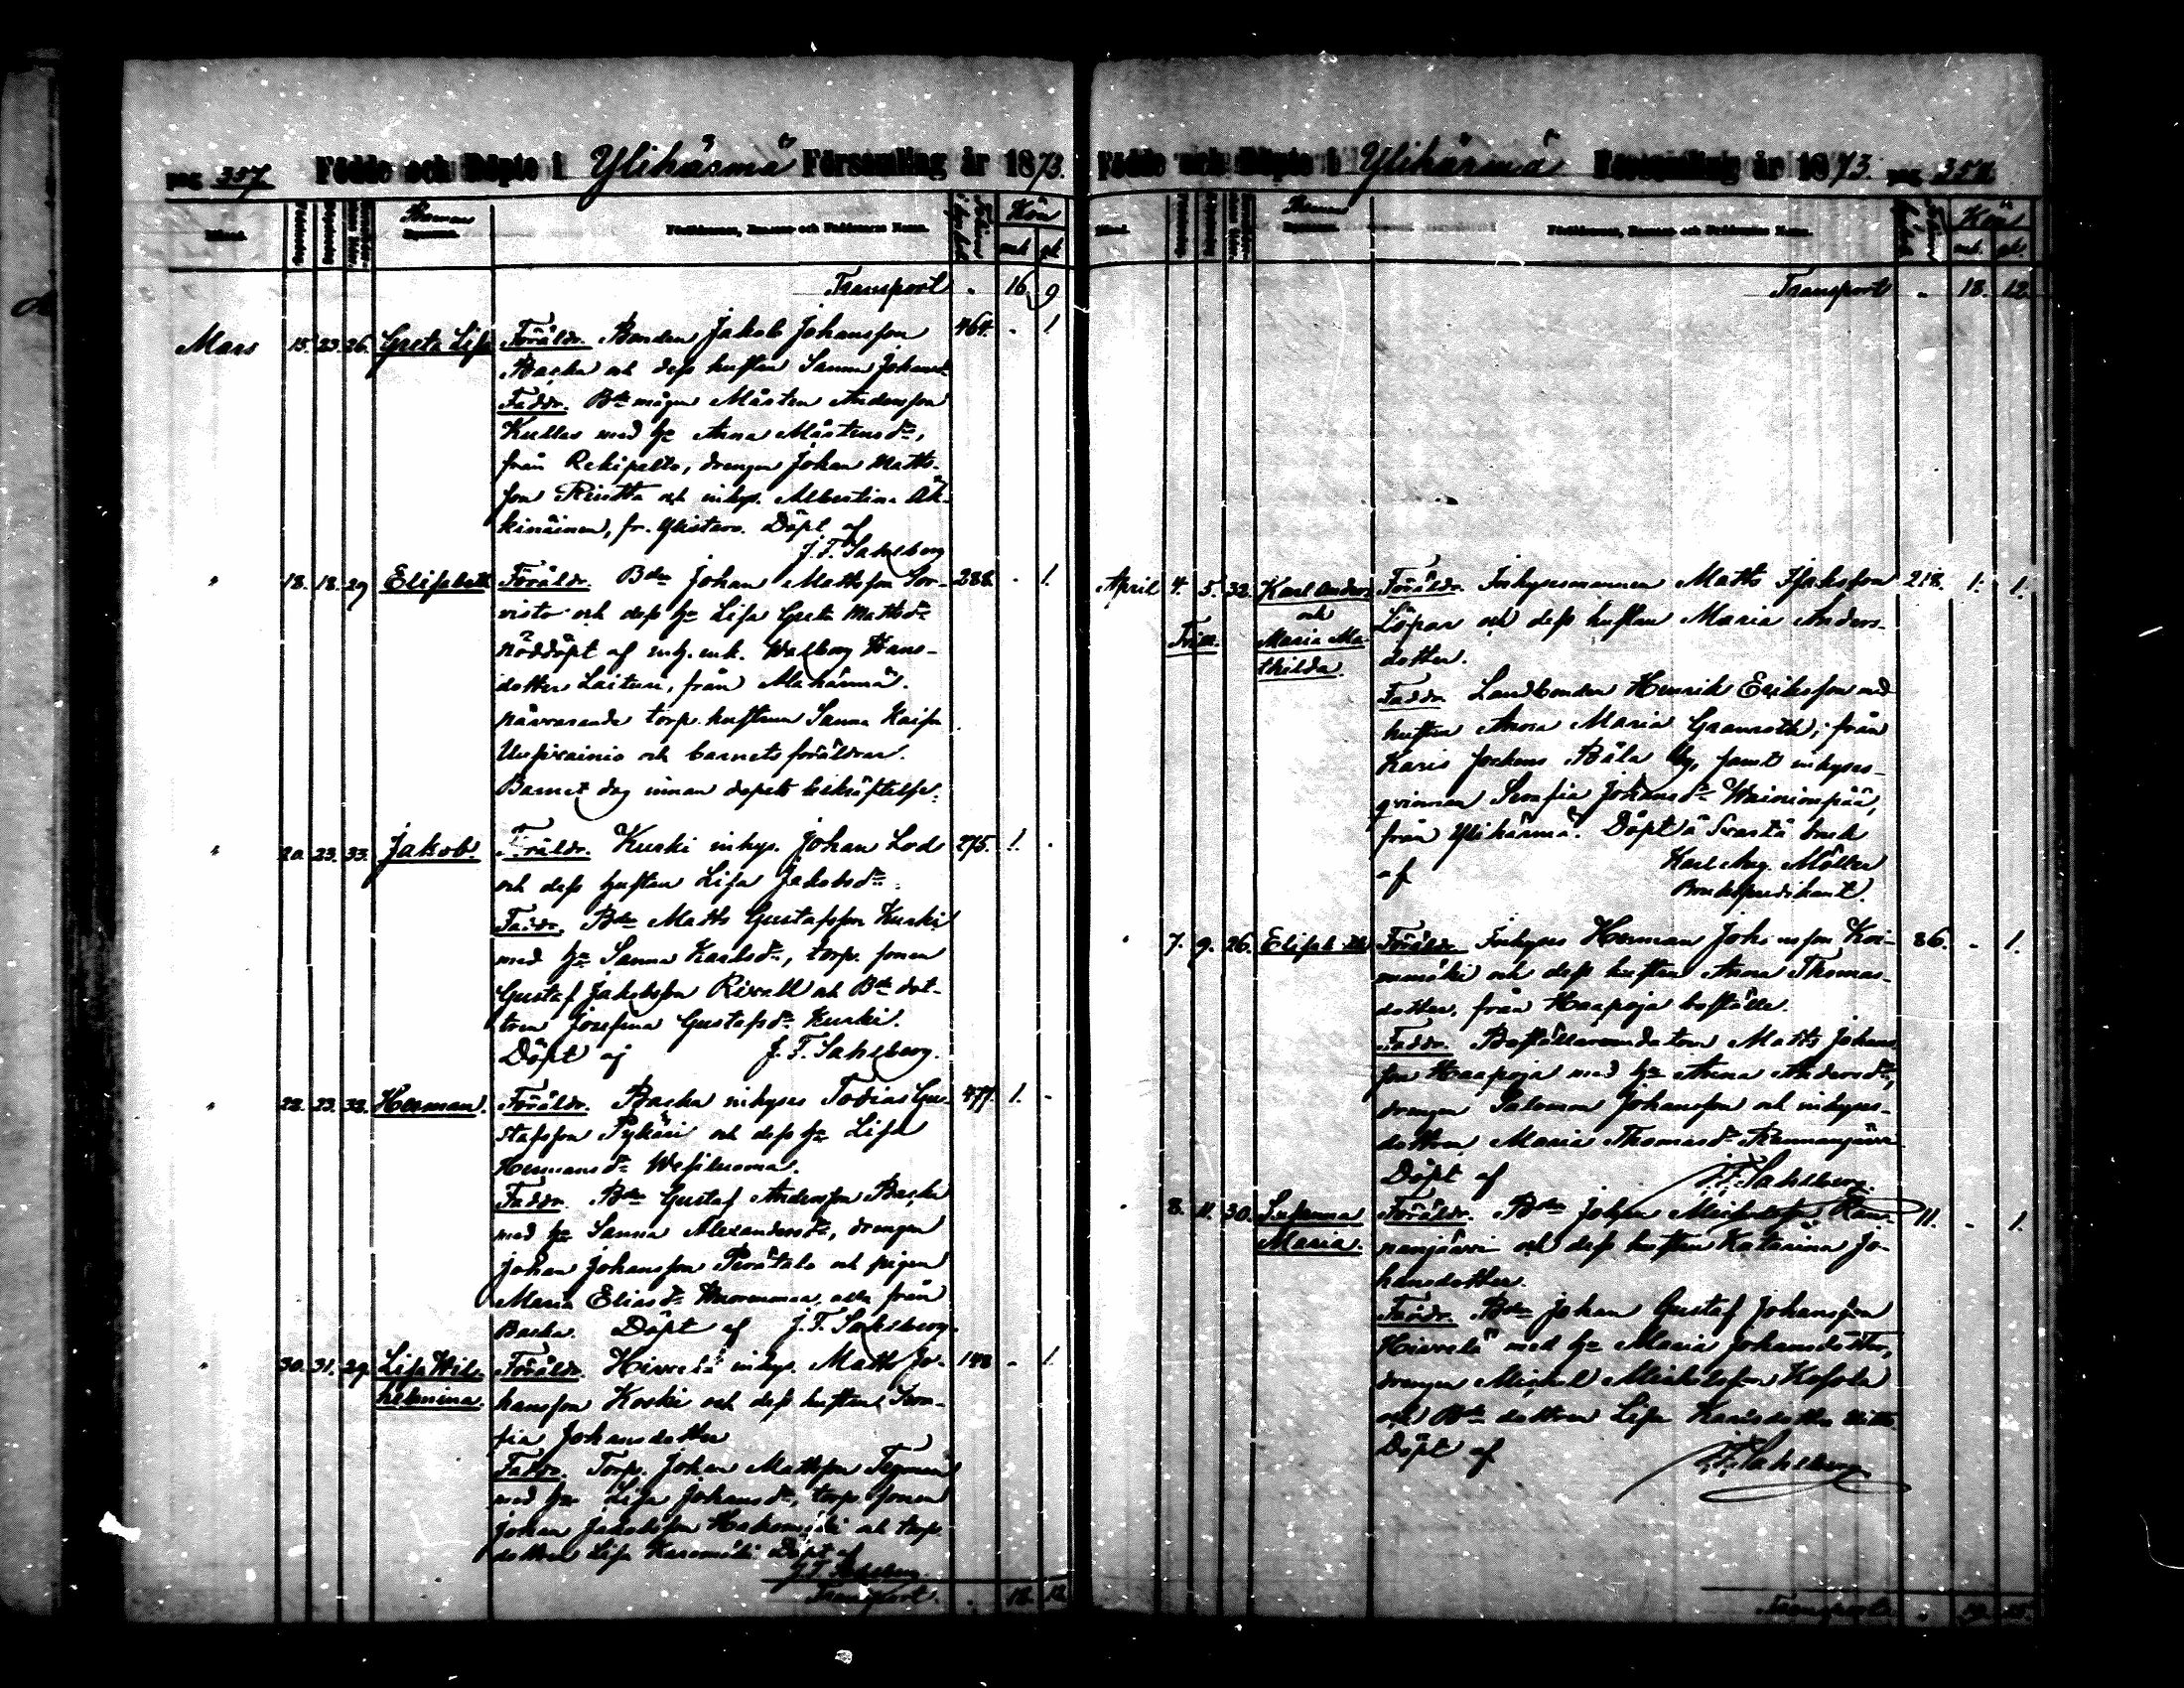 pag 357. Födde och Döpte i Ylihärmä Församling år 1873.
Månad. Födelsedag. Döpelsedag. Barnens Namn. Föräldrarnes, Barnens och Faddrarnes Namn. Kön
mk. qk.
Transport . 16 9
Mars 15. 23. 26. Greta Lisa Föräldr. Bonden Jakob Johansson 464. . 1
Backa och dess hustru Sanna Johansdr
Faddr. Bdemågen Mårten Andersson
Kullas med ha Anna Mårtensdr,
från Rekipelto, drengen Johan Matts-
son Riutta och inhys. Albertina Ak-
kinäinen, fr. Ylistaro. Döpt af
J. F. Sahlberg
" 18. 18. 29 Elisabeth Föräldr. Bdn Johan Mattsson Sor- 288. . 1.
visto och dess ha Lisa Greta Mattsdr
Nöddöpt af inh. enk. Walborg Hans-
dotter Laituri, från Alahärmä.
närvarande torp. hustrun Sanna Kaisa
Uusivainio och barnets föräldrar.
Barnet dog innan dopets bekräftelse.
" 20. 23. 33. Jakob. Föräldr. Kuski inhys. Johan Lod 275. 1. .
och dess hustru Lisa Jakobsdr.
Faddr. Bdn Matts Gustafsson Kuski
med ha Sanna Karlsdr, torp. sonen
Gustaf Jakobsson Rivall och Bde dot-
tren Josefina Gustafsdr Kuski.
Döpt af J. F. Sahlberg.
" 22. 23. 32. Herman. Föräldr. Backa inhyses Tobias Gu- 477. 1. .
stafsson Pykäri och dess ha Lisa
Hermansdr Wesiluoma.
Faddr. Bdn Gustaf Andersson Backa
med ha Sanna Alexandersdr, drengen
Johan Johansson Perätalo och pigan
Maria Eliasdr Wuorenmaa, alla från
Backa. Döpt af J. F. Sahlberg.
" 30. 31. 29. Lisa Wil- Föräldr. Hirvelä inhys. Matts Jo- 148 . 1.
helmina. hansson Koski och dess hustru Sera-
fia Johansdotter
Faddr. Torp. Johan Mattsson Tegman
med ha Lisa Johansdr, torpe sonen
Johan Jakobsson Hakomäki och torp.
dottren Lisa Karomäki. Döpt af
J. F. Sahlberg.
Transport . 18. 12
Födde och Döpte i Ylihärmä Församling år 1873. pag 358.
Månad. Barnens Namn. Föräldrarnes, Barnens och Faddrarnes Namn. Kön
mk. qk.
Transport . 18. 12
April 4. 5. 32. Karl Anders Föräldr. Inhysesmannen Matts Isaksson 218. 1. 1.
och Löpar och dess hustru Maria Anders-
Tvill. Maria Ma- dotter.
thilda. Faddr. Landbonden Henrik Eriksson med
hustru Anna Maria Granroth, från
Karis Sockens Båla By, samt inhyses-
qvinnan Serafia Johansdr Wainionpää,
från Ylihärmä. Döpt å Svartå bruk
af Karl Aug. Möller
Brukspredikant.
" 7. 9. 26. Elisabeth Föräldr. Inhyses Herman Johansson Koi- 86. . 1.
mäki och dess hustru Anna Thomas-
dotter, från Haapoja boställe.
Faddr. Boställarendatorn Matts Johans-
son Haapoja med ha Anna Andersdr,
drengen Salomon Johansson och inhyses-
dottren Maria Thomasdr Kannanjärvi
Döpt af J. F. Sahlberg.
" 8. 11. 30. Susanna Föräldr. Bdn Johan Michelsson Kan- 11. . 1.
Maria. nanjärvi och dess hustru Katarina Jo-
hansdotter.
Faddr. Bdn Johan Gustaf Johansson
Hirvelä med ha Maria Johansdotter,
drengen Michel Michelsson Kosola
och Bde dottren Lisa Karlsdotter
Döpt af J. F. Sahlberg
Transport . 19. 15.